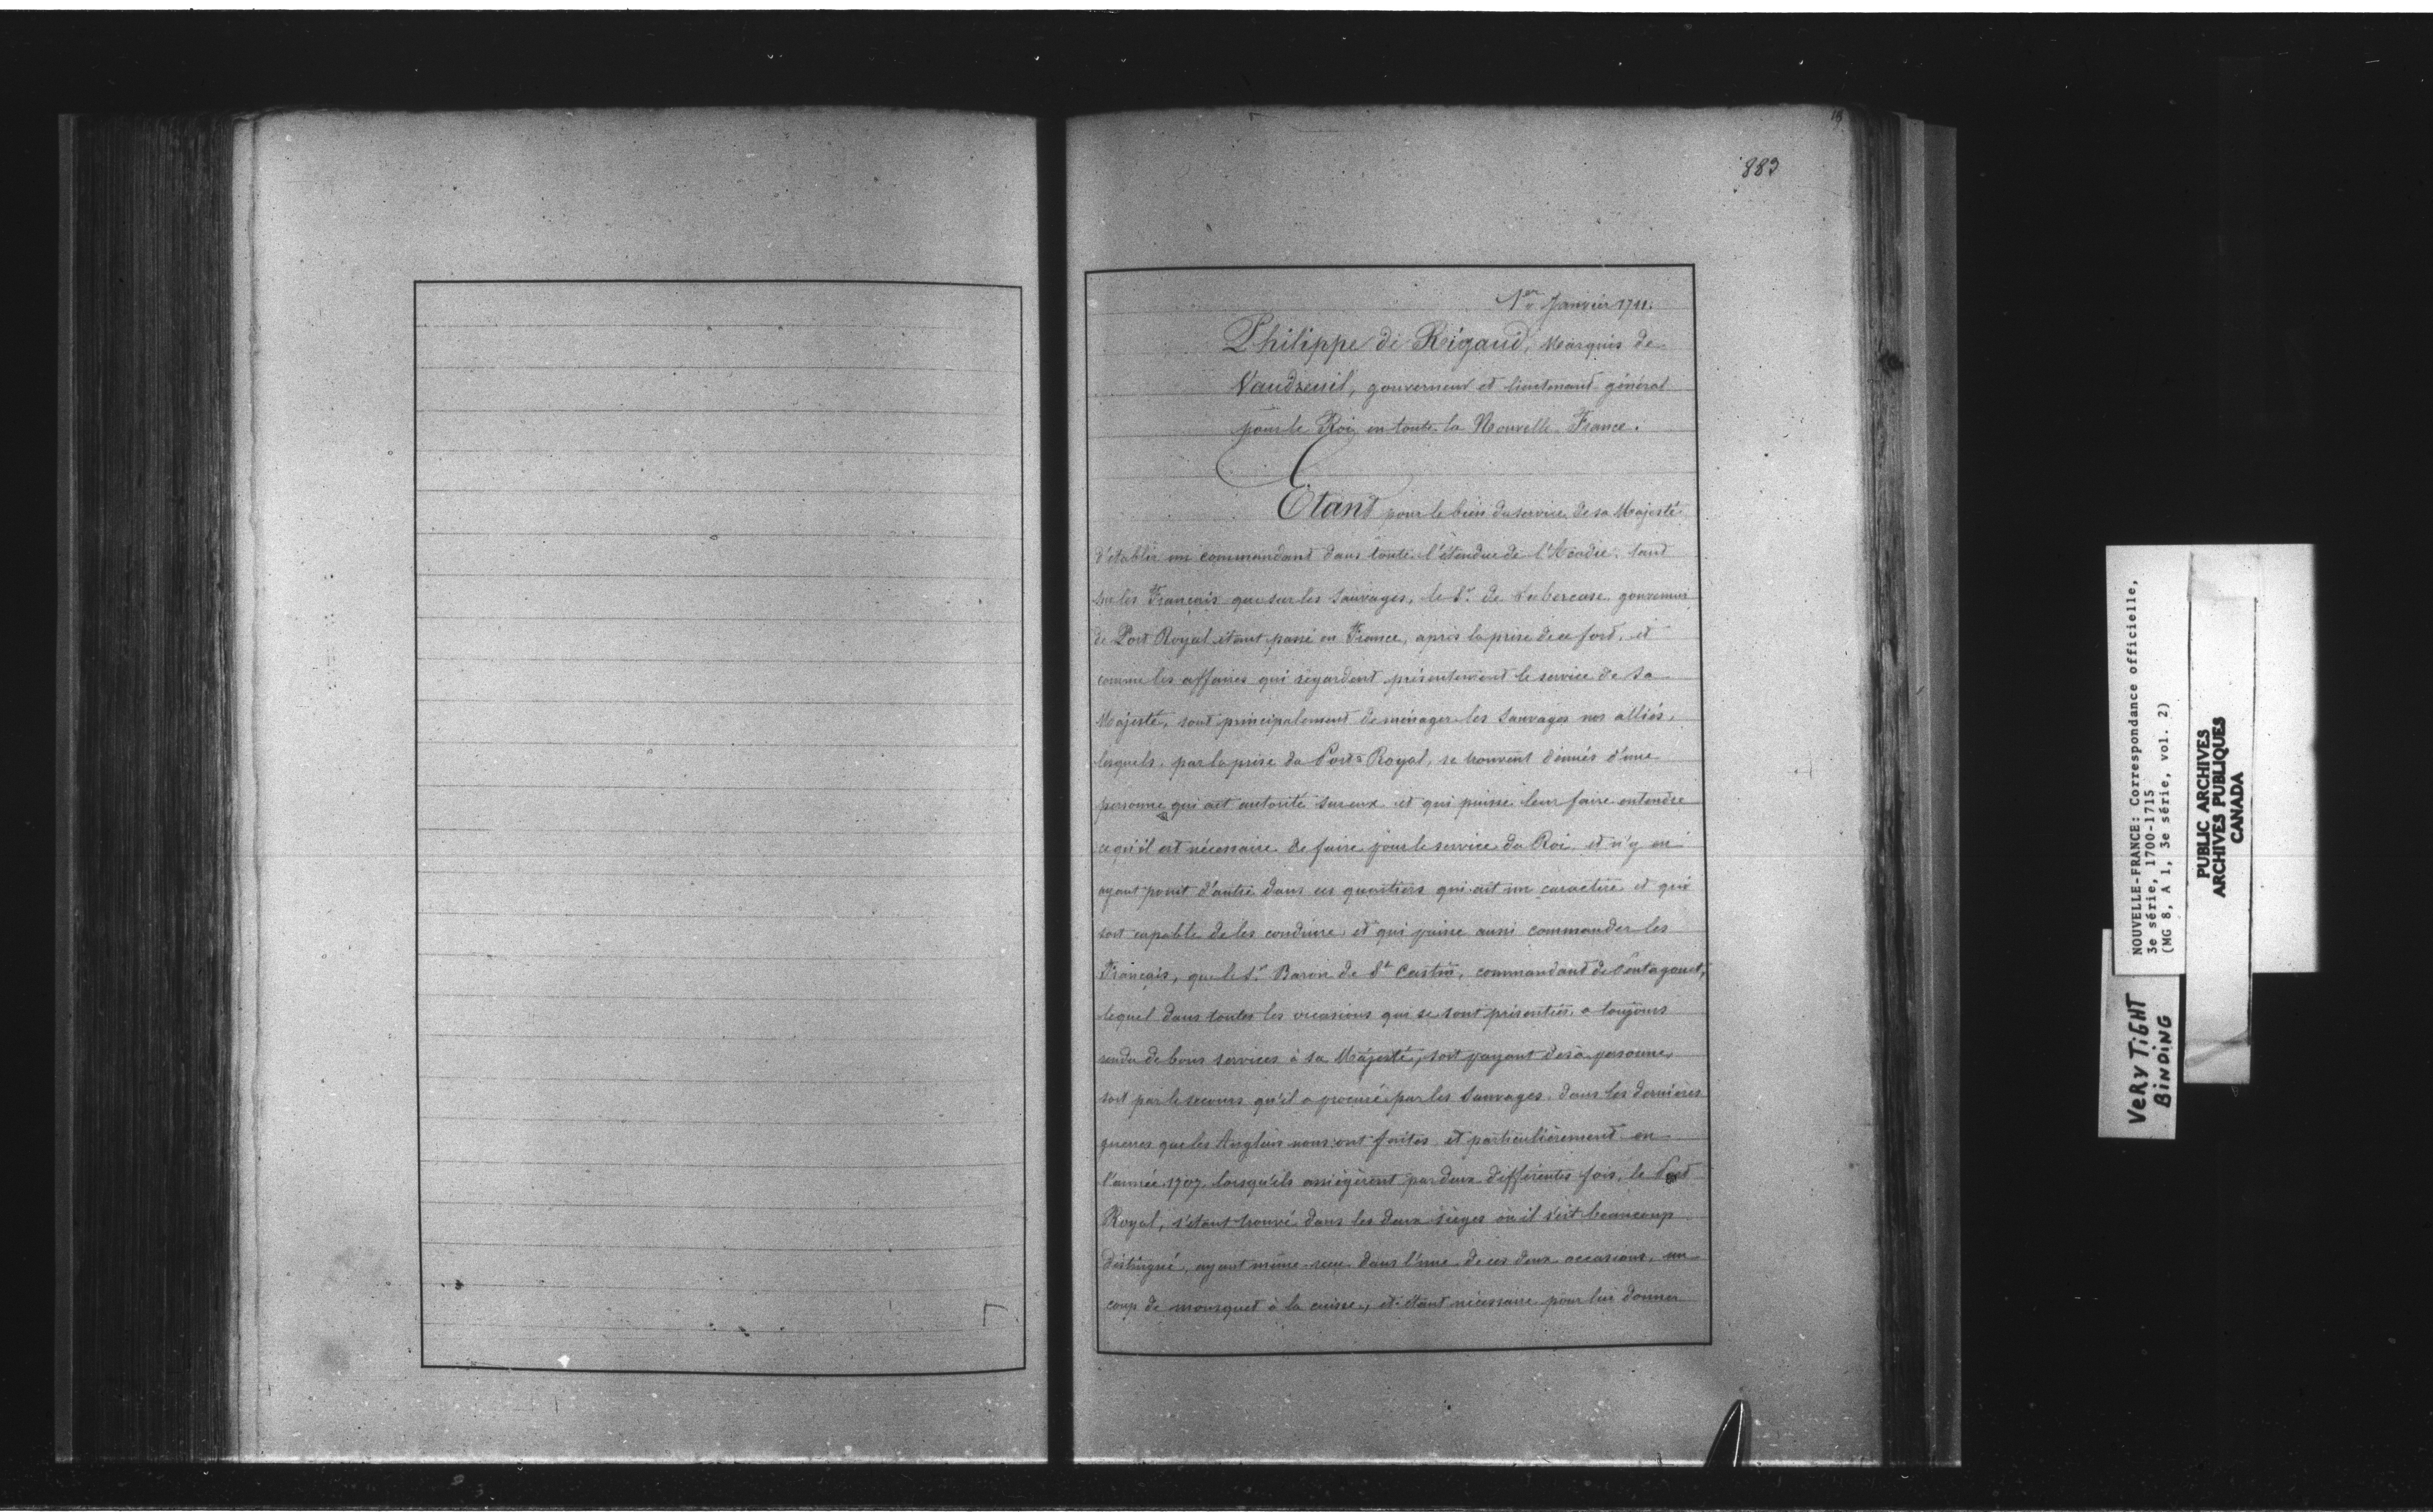 883
1er Janvier 1711.
Philippe de Rigaud, Marquis de
Vaudreuil, gouverneur et lieutenant général
pour le Roi en toute la Nouvelle France.
Etant pour le bien du service de sa Majesté
d'établir un commandant dans toute l'étendue de l'Acadie, tant
sur les Français que sur les Sauvages, le Sr. de Subercase, gouverneur
de Port Royal étant passé en France, après la prise de ce fort, et
comme les affaires qui regardent présentement le service de Sa
Majesté, sont principalement de ménager les Sauvages nos alliés,
lesquels, par la prise du Port Royal, se trouvent dénués d'une
personne qui ait autorité sur eux et qui puisse leur faire entendre
ce qu'il est nécessaire de faire pour le service du Roi, et n'y en
ayant point d'autre dans ces quartiers qui ait un caractère et qui
soit capable de les conduire, et qui puisse aussi commander les
Français, que le Sr. Baron de St Castin, commandant de Pentagouet,
lequel dans toutes les occasions qui se sont présentées, a toujours
rendu de bons services à sa Majesté, soit payant de sa personne,
soit par le secours qu'il a procuré par les Sauvages, dans les dernières
guerres que les Anglais nous ont faites et particulièrement en
l'année 1707, lorsqu'ils assiégèrent par deux différentes fois, le Port
Royal, s'étant trouvé dans les deux sièges où il s'est beaucoup
distingué, ayant même reçu dans l'une de ces deux occasions, un
coup de mousquet à la cuisse, et étant nécessaire pour lui donner
NOUVELLE-FRANCE: Correspondance officielle,
3e série, 1700-1715
(MG 8, A 1, 3e série, vol. 2)
PUBLIC ARCHIVES
ARCHIVES PUBLIQUES
CANADA
VERY TIGHT
BINDING